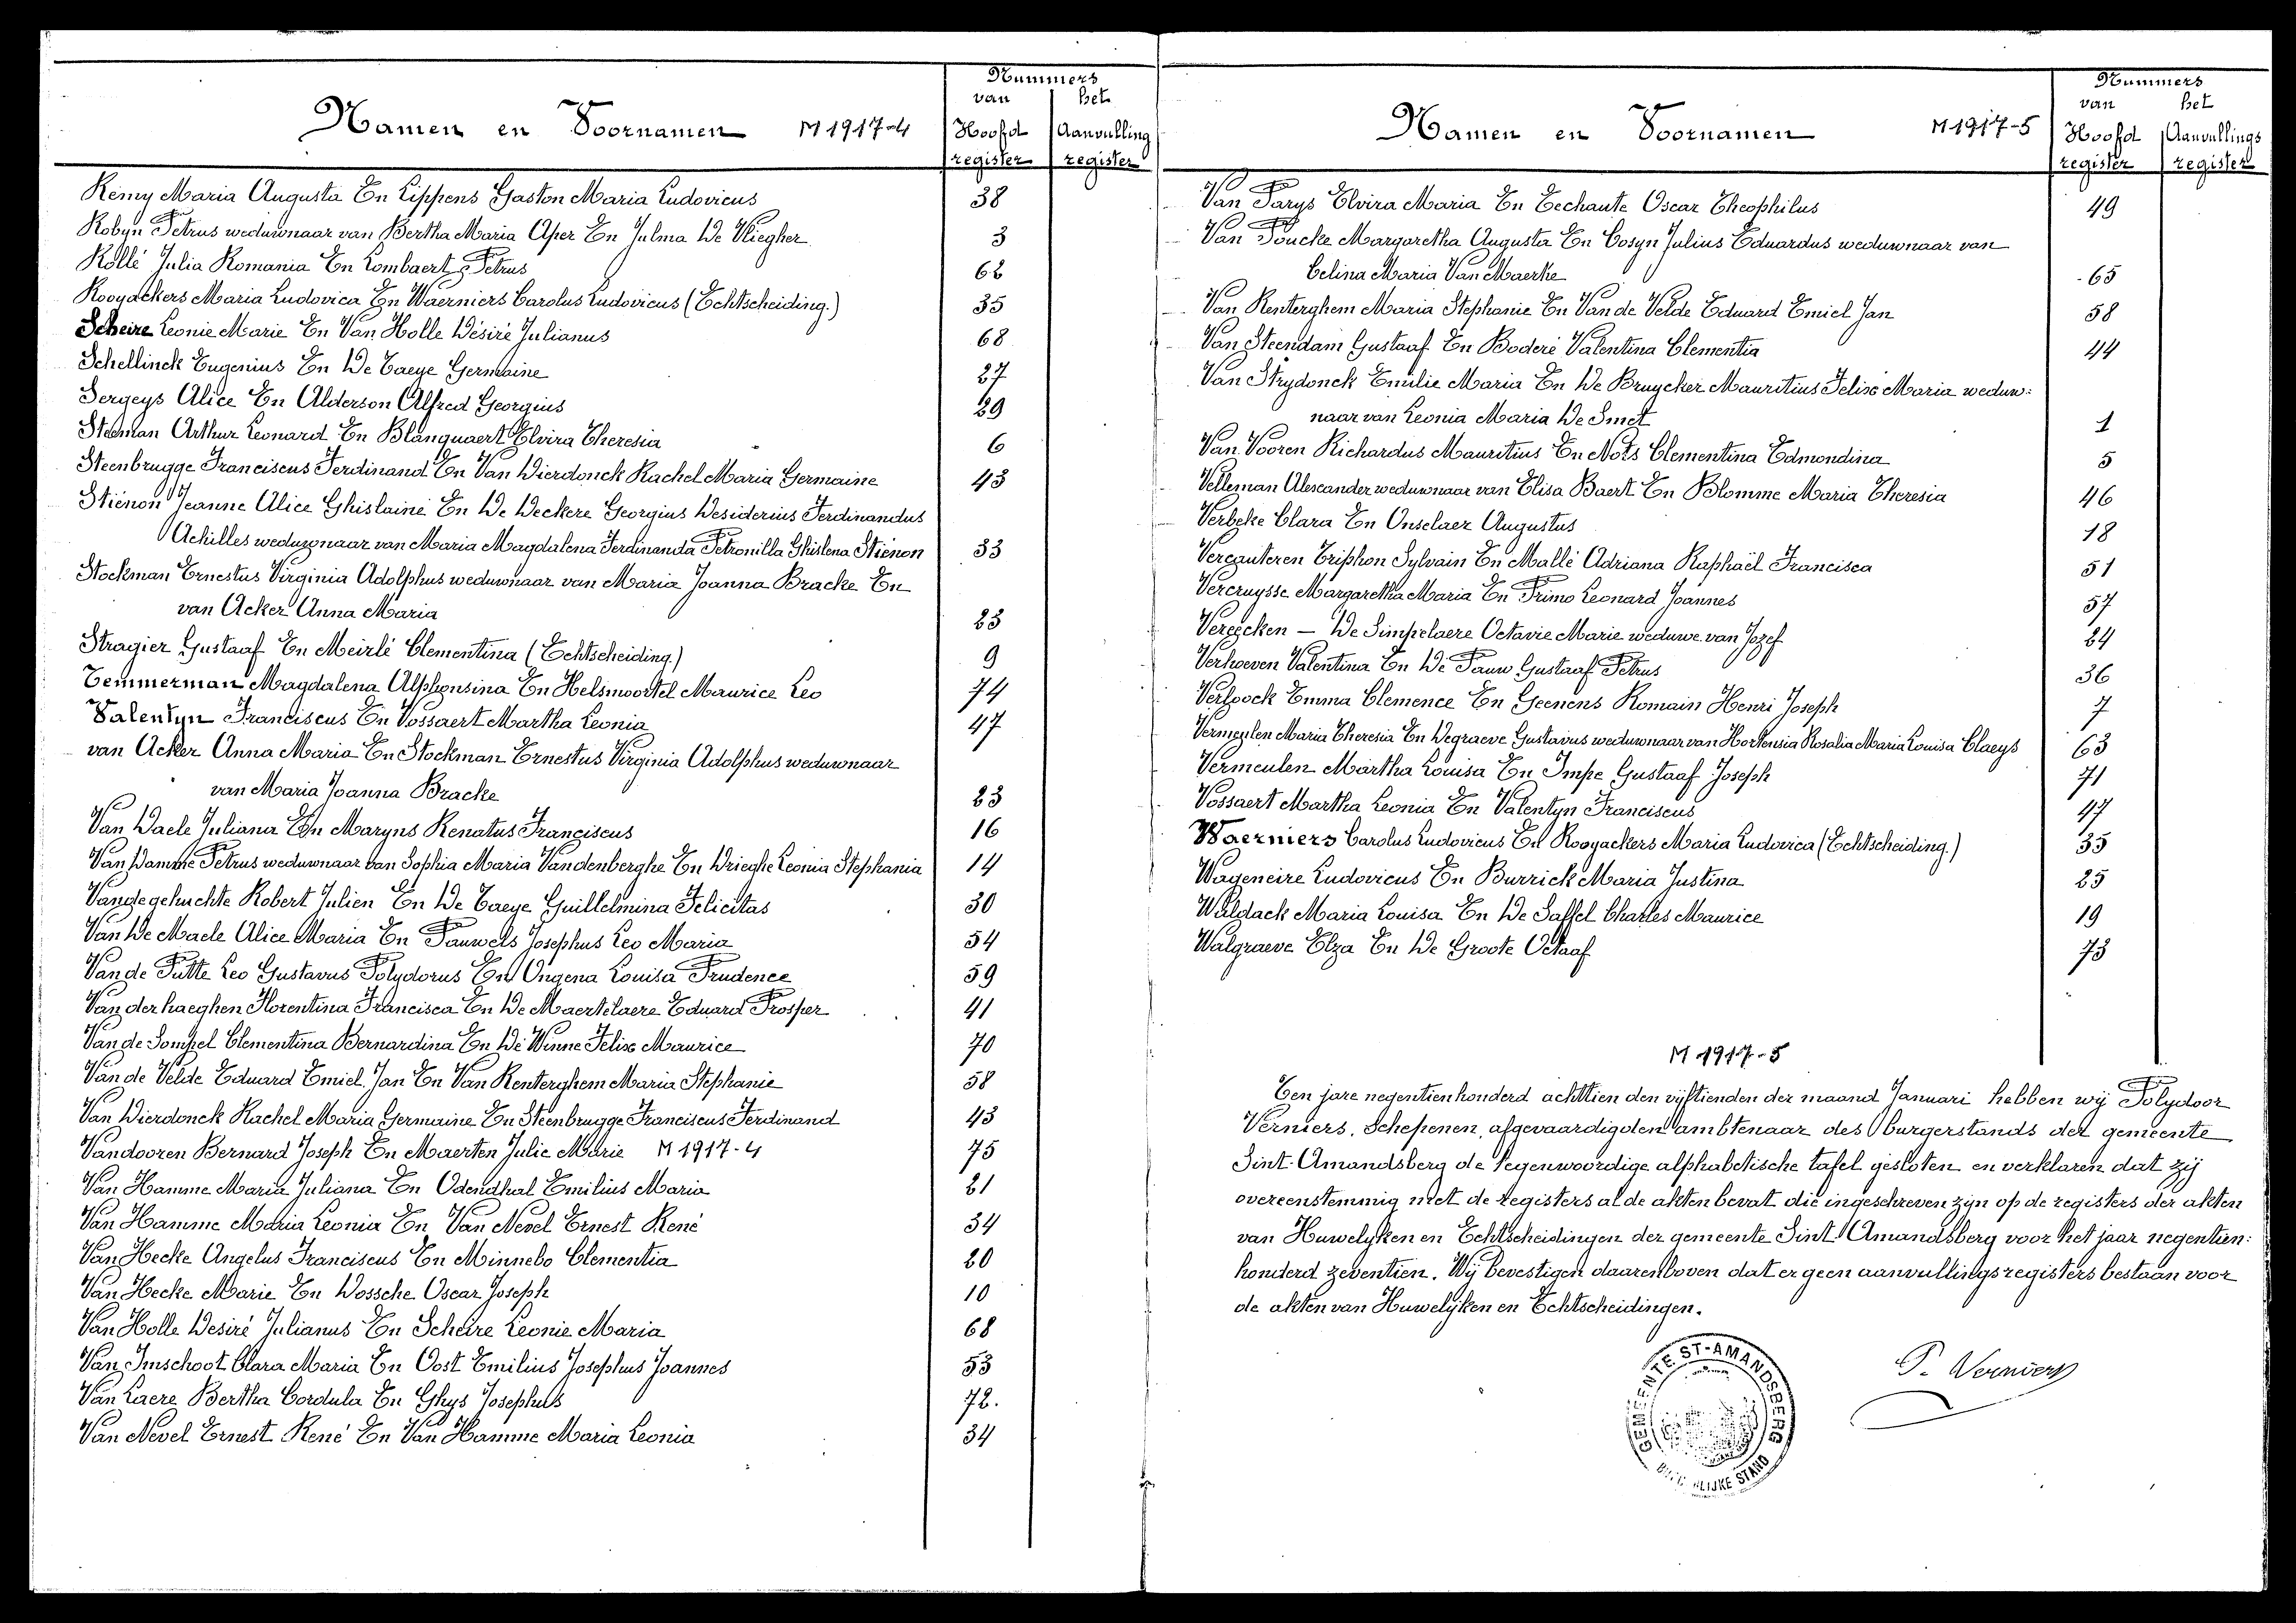 Namen en Voornamen M 1917-4
Nummers
van het
Hoofd Aanvulling
register register
Remy Maria Augusta En Lippens Gaston Maria Ludovicus 38
Robyn Petrus weduwnaar van Bertha Maria Aper En Julma De Vliegher 3
Rollé Julia Romania En Lombaert Petrus 62
Rooyackers Maria Ludovica En Waerniers Carolus Ludovicus (Echtscheiding.) 35
Scheire Leonie Marie En Van Holle Désiré Julianus 68
Schellinck Eugenius En De Taeye Germaine 27
Sergeys Alice En Alderson Alfred Georgius 29
Stedman Arthur Leonard En Blanquaert Elvira Theresia 6
Steenbrugge Franciscus Ferdinand En Van Dierdonck Rachel Maria Germaine 43
Stiénon Jeanne Alice Ghislaine En De Deckere Georgius Desiderius Ferdinandus
Achilles weduwnaar van Maria Magdalena Ferdinanda Petronilla Ghislena Stiénon 33
Stockman Ernestus Virginia Adolphus weduwnaar van Maria Joanna Bracke En
van Acker Anna Maria 23
Stragier Gustaaf En Meirlé Clementina (Echtscheiding.) 9
Temmerman Magdalena Alphonsina En Helsmoortel Maurice Leo 74
Valentyn Franciscus En Vossaert Martha Leonia 47
van Acker Anna Maria En Stockman Ernestus Virginia Adolphus weduwnaar
van Maria Joanna Bracke 23
Van Daele Juliana En Maryns Renatus Franciscus 16
Van Damme Petrus weduwnaar van Sophia Maria Vandenberghe En Drieghe Leonia Stephania 14
Vandegehuchte Robert Julien En De Taeye Guillelmina Felicitas 30
Van De Maele Alice Maria En Pauwels Josephus Leo Maria 54
Van de Putte Leo Gustavus Polydorus En Ongena Louisa Prudence 59
Van der haeghen Florentina Francisca En De Maertelaere Eduard Prosper 41
Van de Sompel Clementina Bernardina En De Winne Felix Maurice 70
Van de Velde Eduard Emiel Jan En Van Renterghem Maria Stephanie 58
Van Dierdonck Rachel Maria Germaine En Steenbrugge Franciscus Ferdinand 43
Vandooren Bernard Joseph En Maerten Julie Marie M 1917-4 75
Van Hamme Maria Juliana En Odendhal Emilius Maria 21
Van Hamme Maria Leonia En Van Nevel Ernest René 34
Van Hecke Angelus Franciscus En Minnebo Clementia 20
Van Hecke Marie En Dossche Oscar Joseph 10
Van Holle Desiré Julianus En Scheire Leonie Maria 68
Van Imschoot Clara Maria En Oost Emilius Josephus Joannes 53
Van Laere Bertha Cordula En Ghys Josephus 72.
Van Nevel Ernest René En Van Hamme Maria Leonia 34
Namen en Voornamen M 1917-5
Nummers
van het
Hoofd Aanvullings
register register
Van Parys Elvira Maria En Eechaute Oscar Theophilus 49
Van Poucke Margaretha Augusta En Cosyn Julius Eduardus weduwnaar van
Celina Maria Van Maerke 65
Van Renterghem Maria Stephanie En Van de Velde Eduard Emiel Jan 58
Van Steendam Gustaaf En Boderé Valentina Clementia 44
Van Strydonck Emilie Maria En De Bruycker Mauritius Felix Maria weduw:
naar van Leonia Maria De Smet 1
Van Vooren Richardus Mauritius En Nots Clementina Edmondina 5
Velleman Alexander weduwnaar van Elisa Baert En Blomme Maria Theresia 46
Verbeke Clara En Onselaer Augustus 18
Vercauteren Triphon Sylvain En Mallé Adriana Raphaël Francisca 51
Vercruysse Margaretha Maria En Primo Leonard Joannes 57
Vereecken — De Simpelaere Octavie Marie weduwe van Jozef 24
Verhoeven Valentina En De Pauw Gustaaf Petrus 36
Verloock Emma Clemence En Geenens Romain Henri Joseph 7
Vermeylen Maria Theresia En Degraeve Gustavus weduwnaar van Hortensia Rosalia Maria Louisa Claeys 63
Vermeulen Martha Louisa En Impe Gustaaf Joseph 71
Vossaert Martha Leonia En Valentyn Franciscus 47
Waerniers Carolus Ludovicus En Rooyackers Maria Ludovica (Echtscheiding.) 35
Wageneire Ludovicus En Burrick Maria Justina 25
Waldack Maria Louisa En De Saffel Charles Maurice 19
Walgraeve Elza En De Groote Octaaf 73
M 1917-5
Ten jare negentienhonderd achttien den vijftienden der maand Januari hebben wij Polydoor
Verniers, Schepenen, afgevaardigden ambtenaar des burgerstands der gemeente
Sint-Amandsberg de tegenwoordige alphabetische tafel gesloten en verklaren dat zij
overeenstemmig met de registers al de akten bevat die ingeschreven zijn op de registers der akten
van Huwelyken en Echtscheidingen der gemeente Sint-Amandsberg voor het jaar negentien:
honderd zeventien. Wij bevestigen daarenboven dat er geen aanvullingsregisters bestaan voor
de akten van Huwelyken en Echtscheidingen.
P. Verniers
GEMEENTE ST-AMANDSBERG
STAND